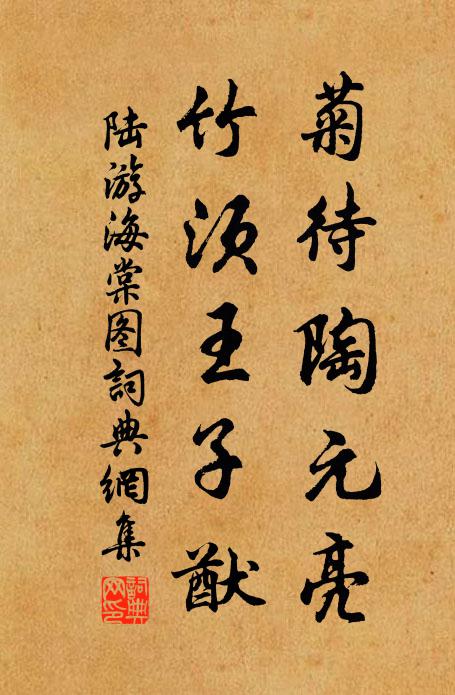 菊待陶元亮
竹须王子猷
陆游海棠图詞典網集
詞典网印